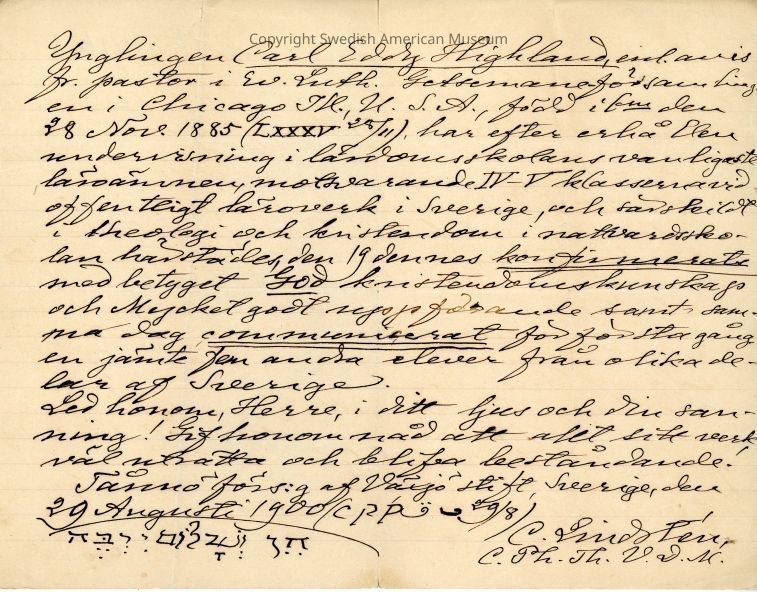 Copyright Swedish American Museum
Ynglingen Carl Eddy Highland, enl. avis
fr. pastor i Ev. Luth. Getsemaneförsamling-
en i Chicago Ill., U. S. A., född i den
28 Nov. 1885 (LXXXV 28/11), har efter erhållen
undervisning i lärdomsskolans vanligaste
läroämnen, motsvarande IV-V klasserna vid
offentligt läroverk i Sverige, och särskildt
i theologi och kristendom i nattvardssko-
lan härstädes, den 19 dennes konfirmerats
med betyget God kristendomskunskap
och Mycket godt uppförande samt sam-
ma dag communicerat för första gång
en jämte fem andra elever från olika de-
lar af Sverige.
Led honom, Herre, i ditt ljus och din san-
ning! Gif honom nåd att allt sitt verk
väl uträtta och blifva beståndande!
Tännö förs:g af Växjö stift, Sverige, den
29 Augusti 1900 29/8)
C. Lindstén,
C. Ph. Th. V. D. M.